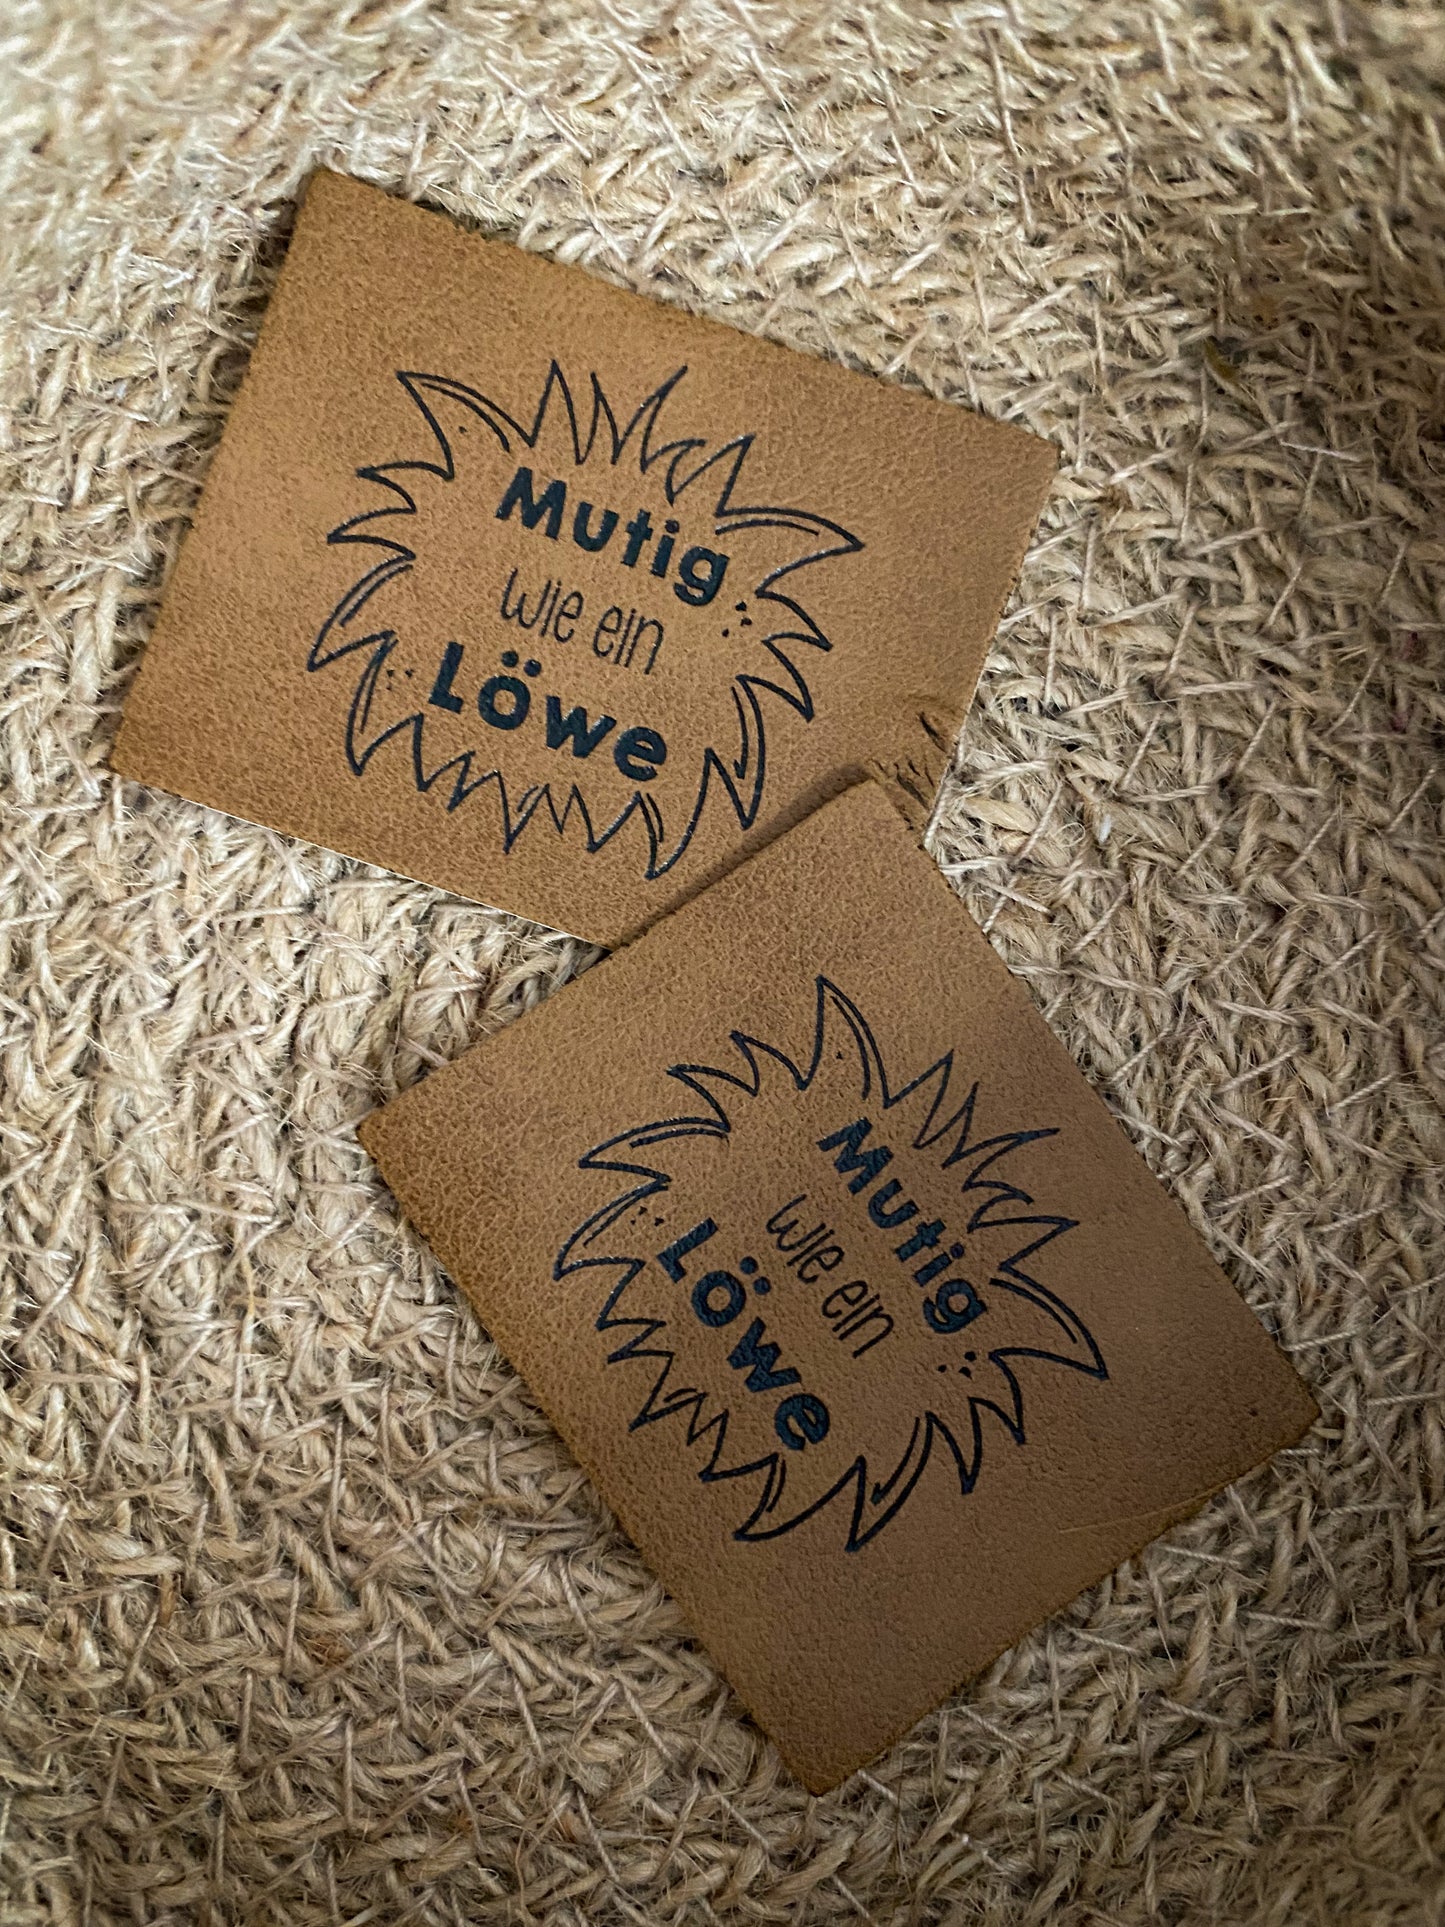 Mutig
wie ein
Löwe
Mutig
wie ein
Löwe